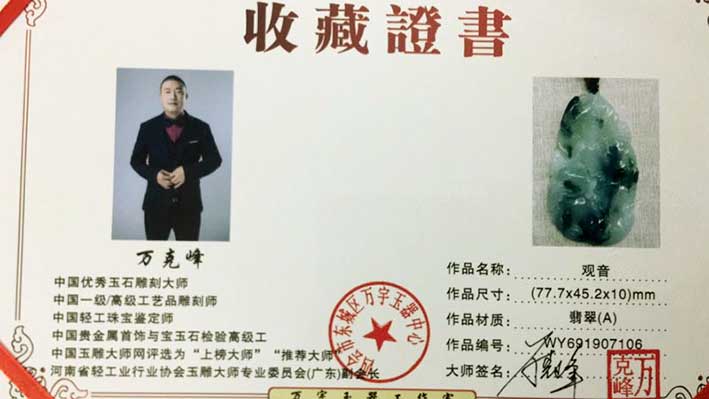 收藏證書
万克峰
中国优秀玉石雕刻大师
中国一级/高级工艺品雕刻师
中国轻工珠宝鉴定师
中国贵金属首饰与宝玉石检验高级工
中国玉雕大师网评选为“上榜大师”“推荐大师”
河南省轻工业行业协会玉雕大师专业委员会(广东)副会长
市东城区万宇玉器中心
作品名称: 观音
作品尺寸: (77.7x45.2x10)mm
作品材质: 翡翠(A)
作品编号: WY691907106
大师签名:
万克峰
万宇玉器工作室